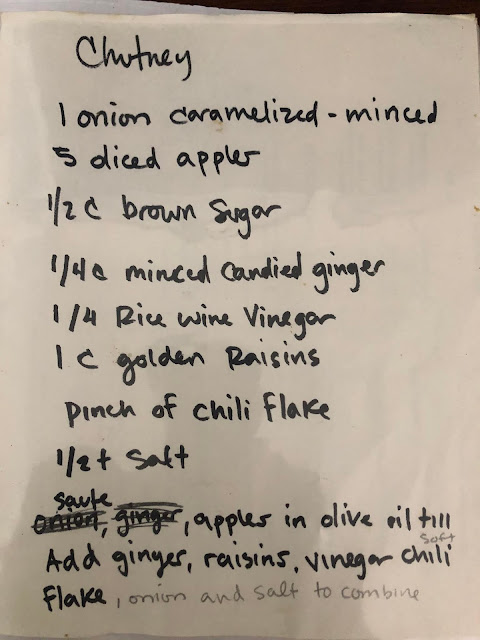 Chutney
1 onion caramelized - minced
5 diced apples
1/2 c brown Sugar
1/4 c minced candied ginger
1/4 Rice wine Vinegar
1 c golden Raisins
pinch of chili flake
1/2 t Salt
saute
onion, ginger, apples in olive oil till
soft
Add ginger, raisins, vinegar chili
flake, onion and salt to combine